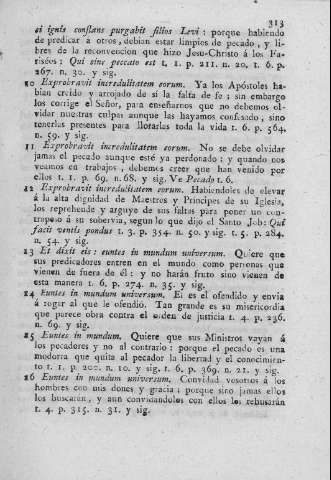 313
et ignis conflans purgabit filios Levi : porque habiendo
de predicar á otros, debian estar limpios de pecado, y li-
bres de la reconvencion que hizo Jesu-Christo á los Fa-
riséos: Qui sine peccato est t. 1. p. 211. n. 20. t. 6. p.
267. n. 30. y sig.
10 Exprobravit incredulitatem eorum. Ya los Apóstoles ha-
bian creido y arrojado de sí la falta de fe; sin embargo
los corrige el Señor, para enseñarnos que no debemos ol-
vidar nuestras culpas aunque las hayamos confesado, sino
tenerlas presentes para llorarlas toda la vida t. 6. p. 564.
n. 59. y sig.
11 Exprobravit incredulitatem eorum. No se debe olvidar
jamas el pecado aunque esté ya perdonado: y quando nos
veamos en trabajos, debemos creer que han venido por
ellos t. 1. p. 69. n. 68. y sig. Ve Pecado t. 6.
12 Exprobravit incredulitatem eorum. Habiendoles de elevar
á la alta dignidad de Maestros y Principes de su Iglesia,
los reprehende y arguye de sus faltas para poner un con-
trapeso á su sobervia, segun lo que dijo el Santo Job: Qui
facit ventis pondus t. 3. p. 354. n. 50. y sig. t. 5. p. 284.
n. 54. y sig.
13 Et dixit eis: euntes in mundum universum. Quiere que
sus predicadores entren en el mundo como personas que
vienen de fuera de él: y no harán fruto sino vienen de
esta manera t. 6. p. 274. n. 35. y sig.
14 Euntes in mundum universum. El es el ofendido y envia
á rogar al que le ofendió. Tan grande es su misericordia
que parece obra contra el orden de justicia t. 4. p. 236.
n. 69. y sig.
15 Euntes in mundum. Quiere que sus Ministros vayan á
los pecadores y no al contrario: porque el pecado es una
modorra que quita al pecador la libertad y el conocimien-
to t. 1. p. 200. n. 10. y sig. t. 6. p. 369. n. 21. y sig.
16 Euntes in mundum universum. Convidad vosotros á los
hombres con mis dones y gracia: porque sino jamas ellos
los buscarán, y aun convidandolos con ellos los rehusarán
t. 4. p. 315. n. 31. y sig.